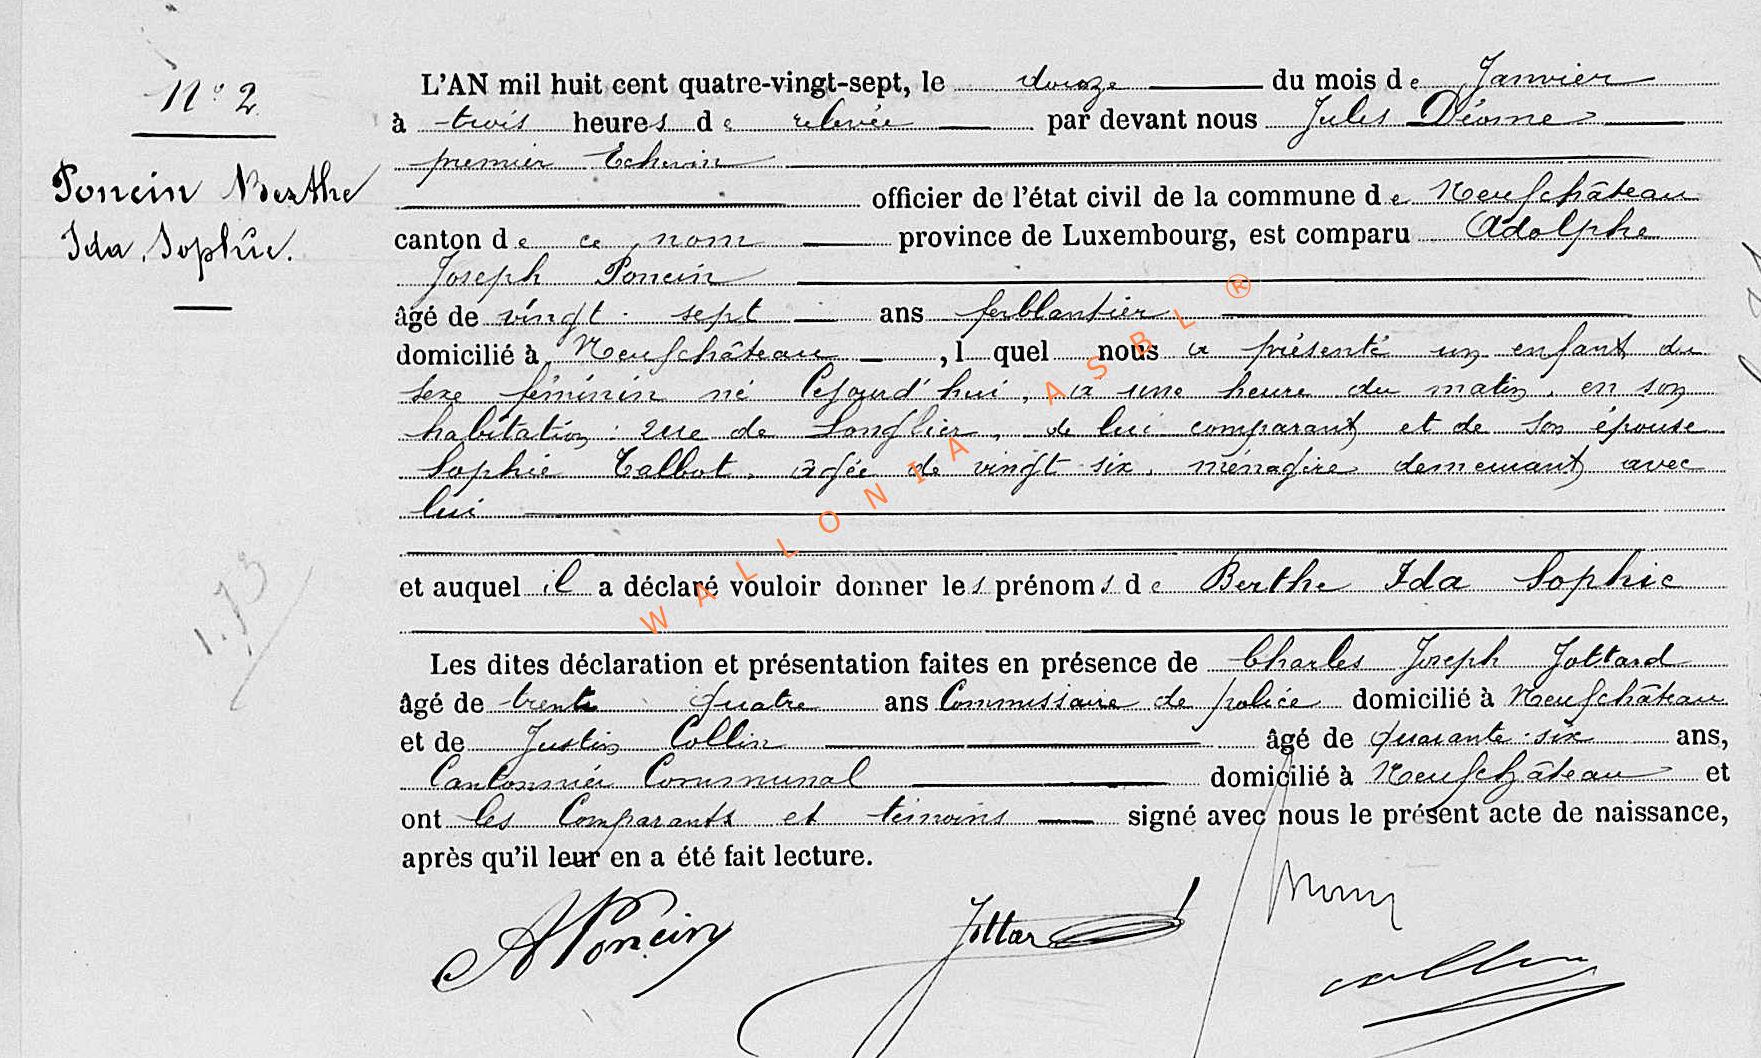 N° 2
Poncin Berthe
Ida, Sophie.
L'AN mil huit cent quatre-vingt-sept, le douze du mois de Janvier
à trois heures de relevée par devant nous Jules
premier Echevin
officier de l'état civil de la commune de Neufchâteau
canton de ce nom province de Luxembourg, est comparu Adolphe
Joseph Poncin
âgé de vingt sept ans ferblantier
domicilié à Neufchâteau, lequel nous a présenté un enfant du
sexe féminin né Cejourd'hui, à une heure du matin, en son
habitation rue de Longlier, de lui comparant et de son épouse
Sophie Talbot, âgée de vingt six, ménagère demeurant avec
lui
et auquel il a déclaré vouloir donner les prénoms de Berthe Ida Sophie
Les dites déclaration et présentation faites en présence de Charles Joseph Jottard
âgé de trente quatre ans Commissaire de police domicilié à Neufchâteau
et de Justin Collin âgé de quarante-six ans,
Cantonnier Communal domicilié à Neufchâteau et
ont les Comparants et témoins signé avec nous le présent acte de naissance,
après qu'il leur en a été fait lecture.
APoncin
Jottard
Collin
WALLONIA ASBL ®
1.73